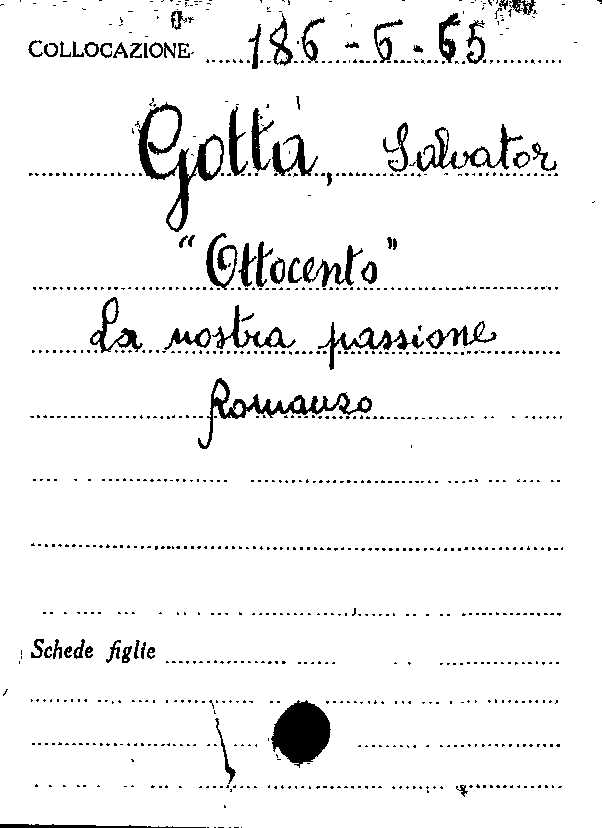 COLLOCAZIONE 186-6-65
Gotta, Salvator
"Ottocento"
La nostra passione
Romanzo
Schede figlie